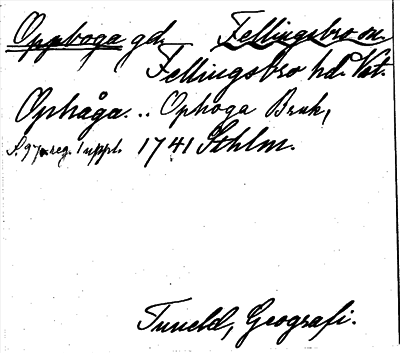 Oppboga gd. Fellingsbro sn.
Fellingsbro hd. Vst.
Ophåga. .. Ophoga Bruk,
S. 97 reg. 1 uppl. 1741 Sthlm.
Tuneld, Geografi.